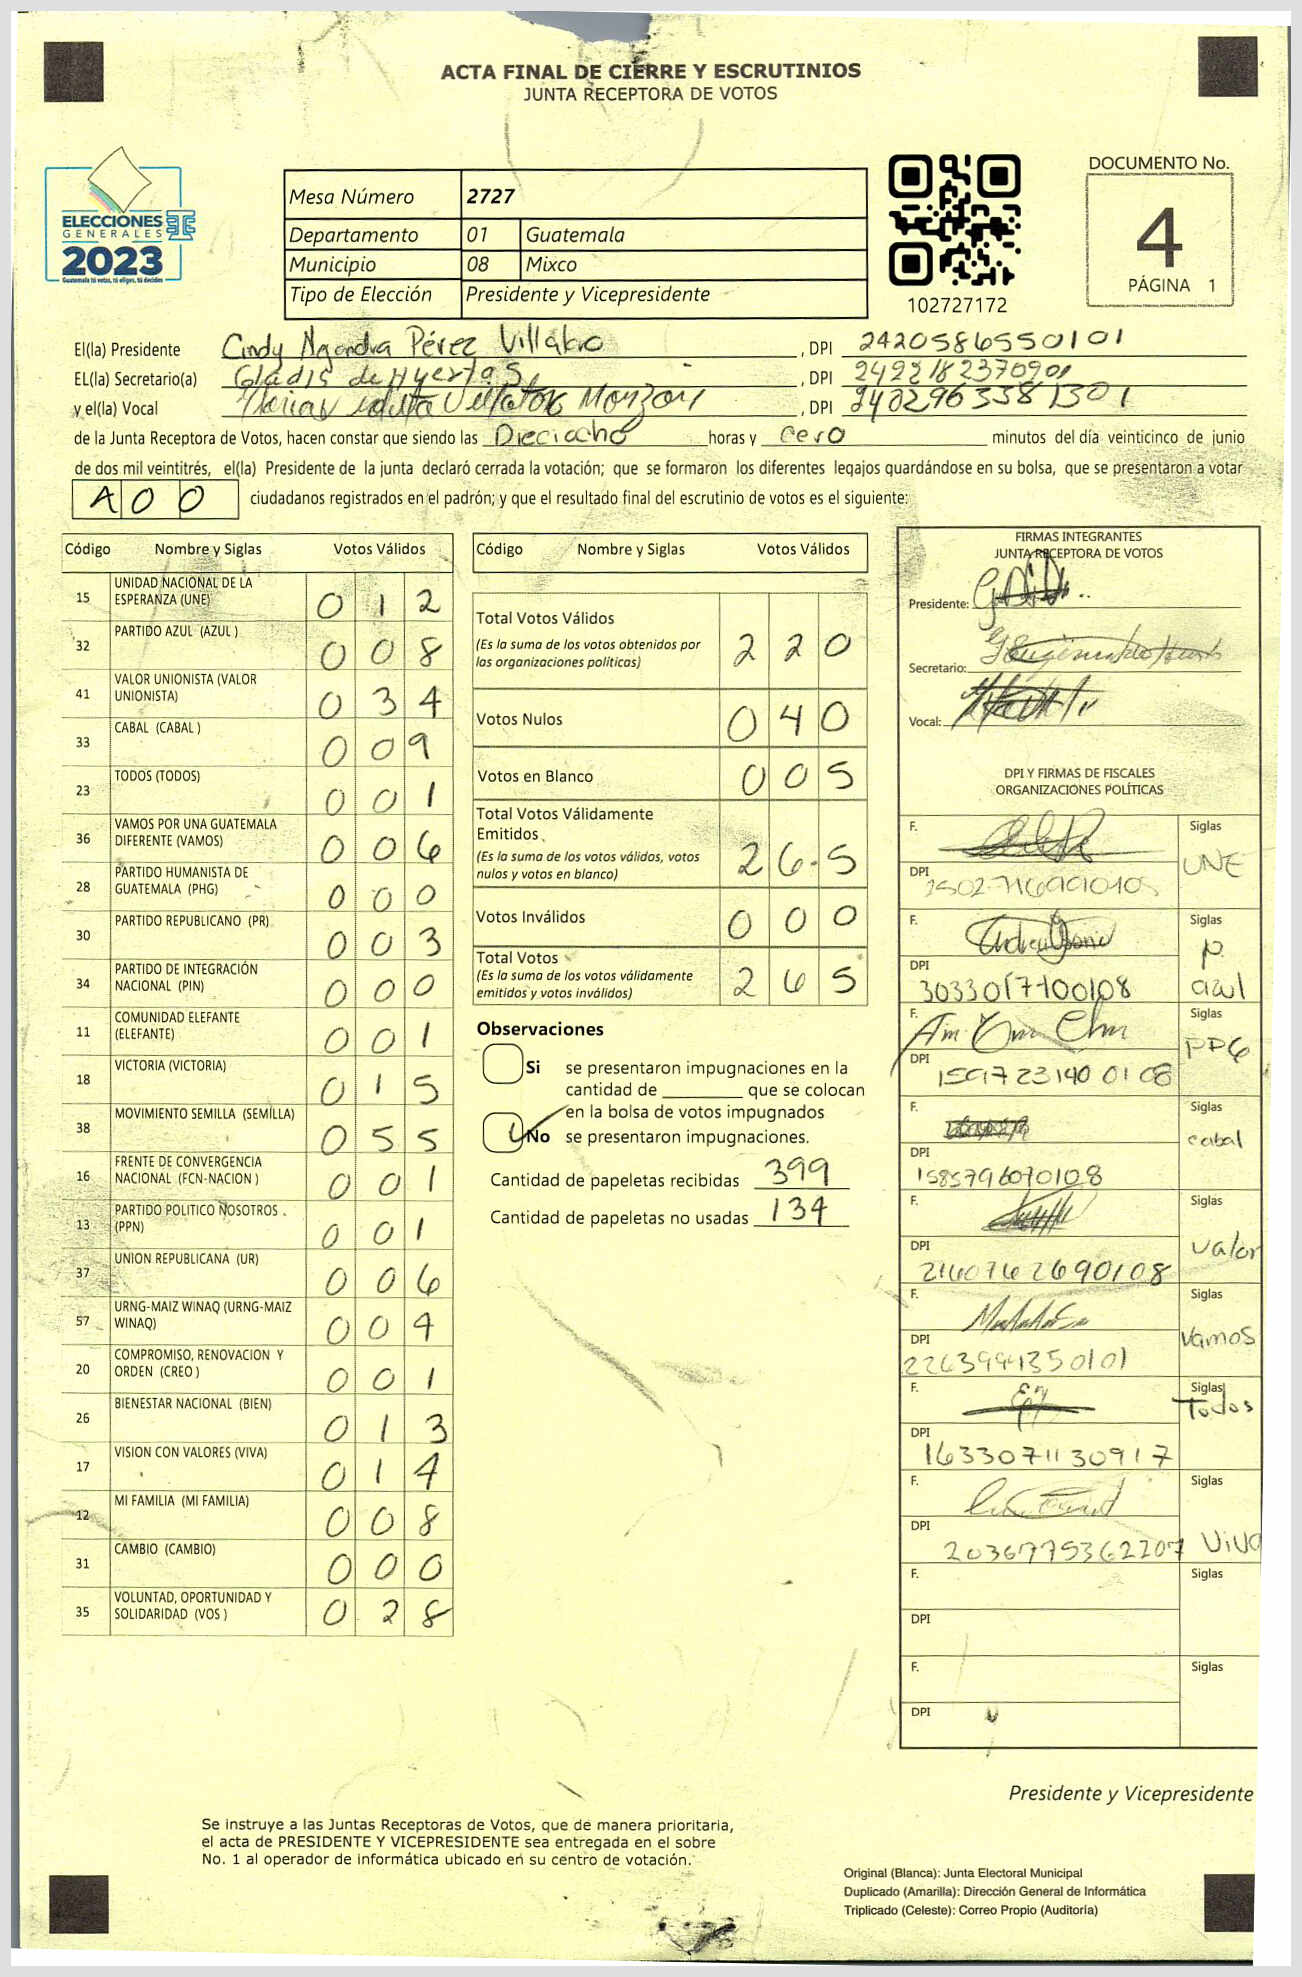 ACTA FINAL DE CIERRE Y ESCRUTINIOS
JUNTA RECEPTORA DE VOTOS
ELECCIONES
GENERALES
2023
Guatemala tú votas, tú eliges, tú decides
Mesa Número 2727
Departamento 01 Guatemala
Municipio 08 Mixco
Tipo de Elección Presidente y Vicepresidente
102727172
DOCUMENTO No.
4
PÁGINA 1
El(la) Presidente Cindy Pérez , DPI 2420586550101
EL(la) Secretario(a) Gladis de Huertas , DPI 2492182370901
y el(la) Vocal Monzon , DPI
de la Junta Receptora de Votos, hacen constar que siendo las Dieciocho horas y cero minutos del día veinticinco de junio
de dos mil veintitrés, el(la) Presidente de la junta declaró cerrada la votación; que se formaron los diferentes legajos guardándose en su bolsa, que se presentaron a votar
A00 ciudadanos registrados en el padrón; y que el resultado final del escrutinio de votos es el siguiente:
Código Nombre y Siglas Votos Válidos
15 UNIDAD NACIONAL DE LA ESPERANZA (UNE) 012
32 PARTIDO AZUL (AZUL ) 008
41 VALOR UNIONISTA (VALOR UNIONISTA) 034
33 CABAL (CABAL ) 009
23 TODOS (TODOS) 001
36 VAMOS POR UNA GUATEMALA DIFERENTE (VAMOS) 006
28 PARTIDO HUMANISTA DE GUATEMALA (PHG) 000
30 PARTIDO REPUBLICANO (PR) 003
34 PARTIDO DE INTEGRACIÓN NACIONAL (PIN) 000
11 COMUNIDAD ELEFANTE (ELEFANTE) 001
18 VICTORIA (VICTORIA) 015
38 MOVIMIENTO SEMILLA (SEMILLA) 055
16 FRENTE DE CONVERGENCIA NACIONAL (FCN-NACION ) 001
13 PARTIDO POLITICO NOSOTROS (PPN) 001
37 UNION REPUBLICANA (UR) 006
57 URNG-MAIZ WINAQ (URNG-MAIZ WINAQ) 004
20 COMPROMISO, RENOVACION Y ORDEN (CREO ) 001
26 BIENESTAR NACIONAL (BIEN) 013
17 VISION CON VALORES (VIVA) 014
12 MI FAMILIA (MI FAMILIA) 008
31 CAMBIO (CAMBIO) 000
35 VOLUNTAD, OPORTUNIDAD Y SOLIDARIDAD (VOS ) 028
Código Nombre y Siglas Votos Válidos
Total Votos Válidos 220
(Es la suma de los votos obtenidos por
las organizaciones políticas)
Votos Nulos 040
Votos en Blanco 005
Total Votos Válidamente
Emitidos 265
(Es la suma de los votos válidos, votos
nulos y votos en blanco)
Votos Inválidos 000
Total Votos 265
(Es la suma de los votos válidamente
emitidos y votos inválidos)
Observaciones
Si se presentaron impugnaciones en la
cantidad de ________ que se colocan
en la bolsa de votos impugnados
No se presentaron impugnaciones.
Cantidad de papeletas recibidas 399
Cantidad de papeletas no usadas 134
FIRMAS INTEGRANTES
JUNTA RECEPTORA DE VOTOS
Presidente:
Secretario:
Vocal:
DPI Y FIRMAS DE FISCALES
ORGANIZACIONES POLÍTICAS
F. Siglas
UNE
DPI
F. Siglas
P.
azul
DPI
3033017700108
F. Siglas
DPI
1597231400108
F. Siglas
cabal
DPI
1585796070108
F. Siglas
Valor
DPI
2160762690108
F. Siglas
Vamos
DPI
2263994350101
F. Siglas
Todos
DPI
1633071130917
F. Siglas
VIVA
DPI
2036775362207
F. Siglas
DPI
F. Siglas
DPI
Presidente y Vicepresidente
Se instruye a las Juntas Receptoras de Votos, que de manera prioritaria,
el acta de PRESIDENTE Y VICEPRESIDENTE sea entregada en el sobre
No. 1 al operador de informática ubicado en su centro de votación.
Original (Blanca): Junta Electoral Municipal
Duplicado (Amarilla): Dirección General de Informática
Triplicado (Celeste): Correo Propio (Auditoría)